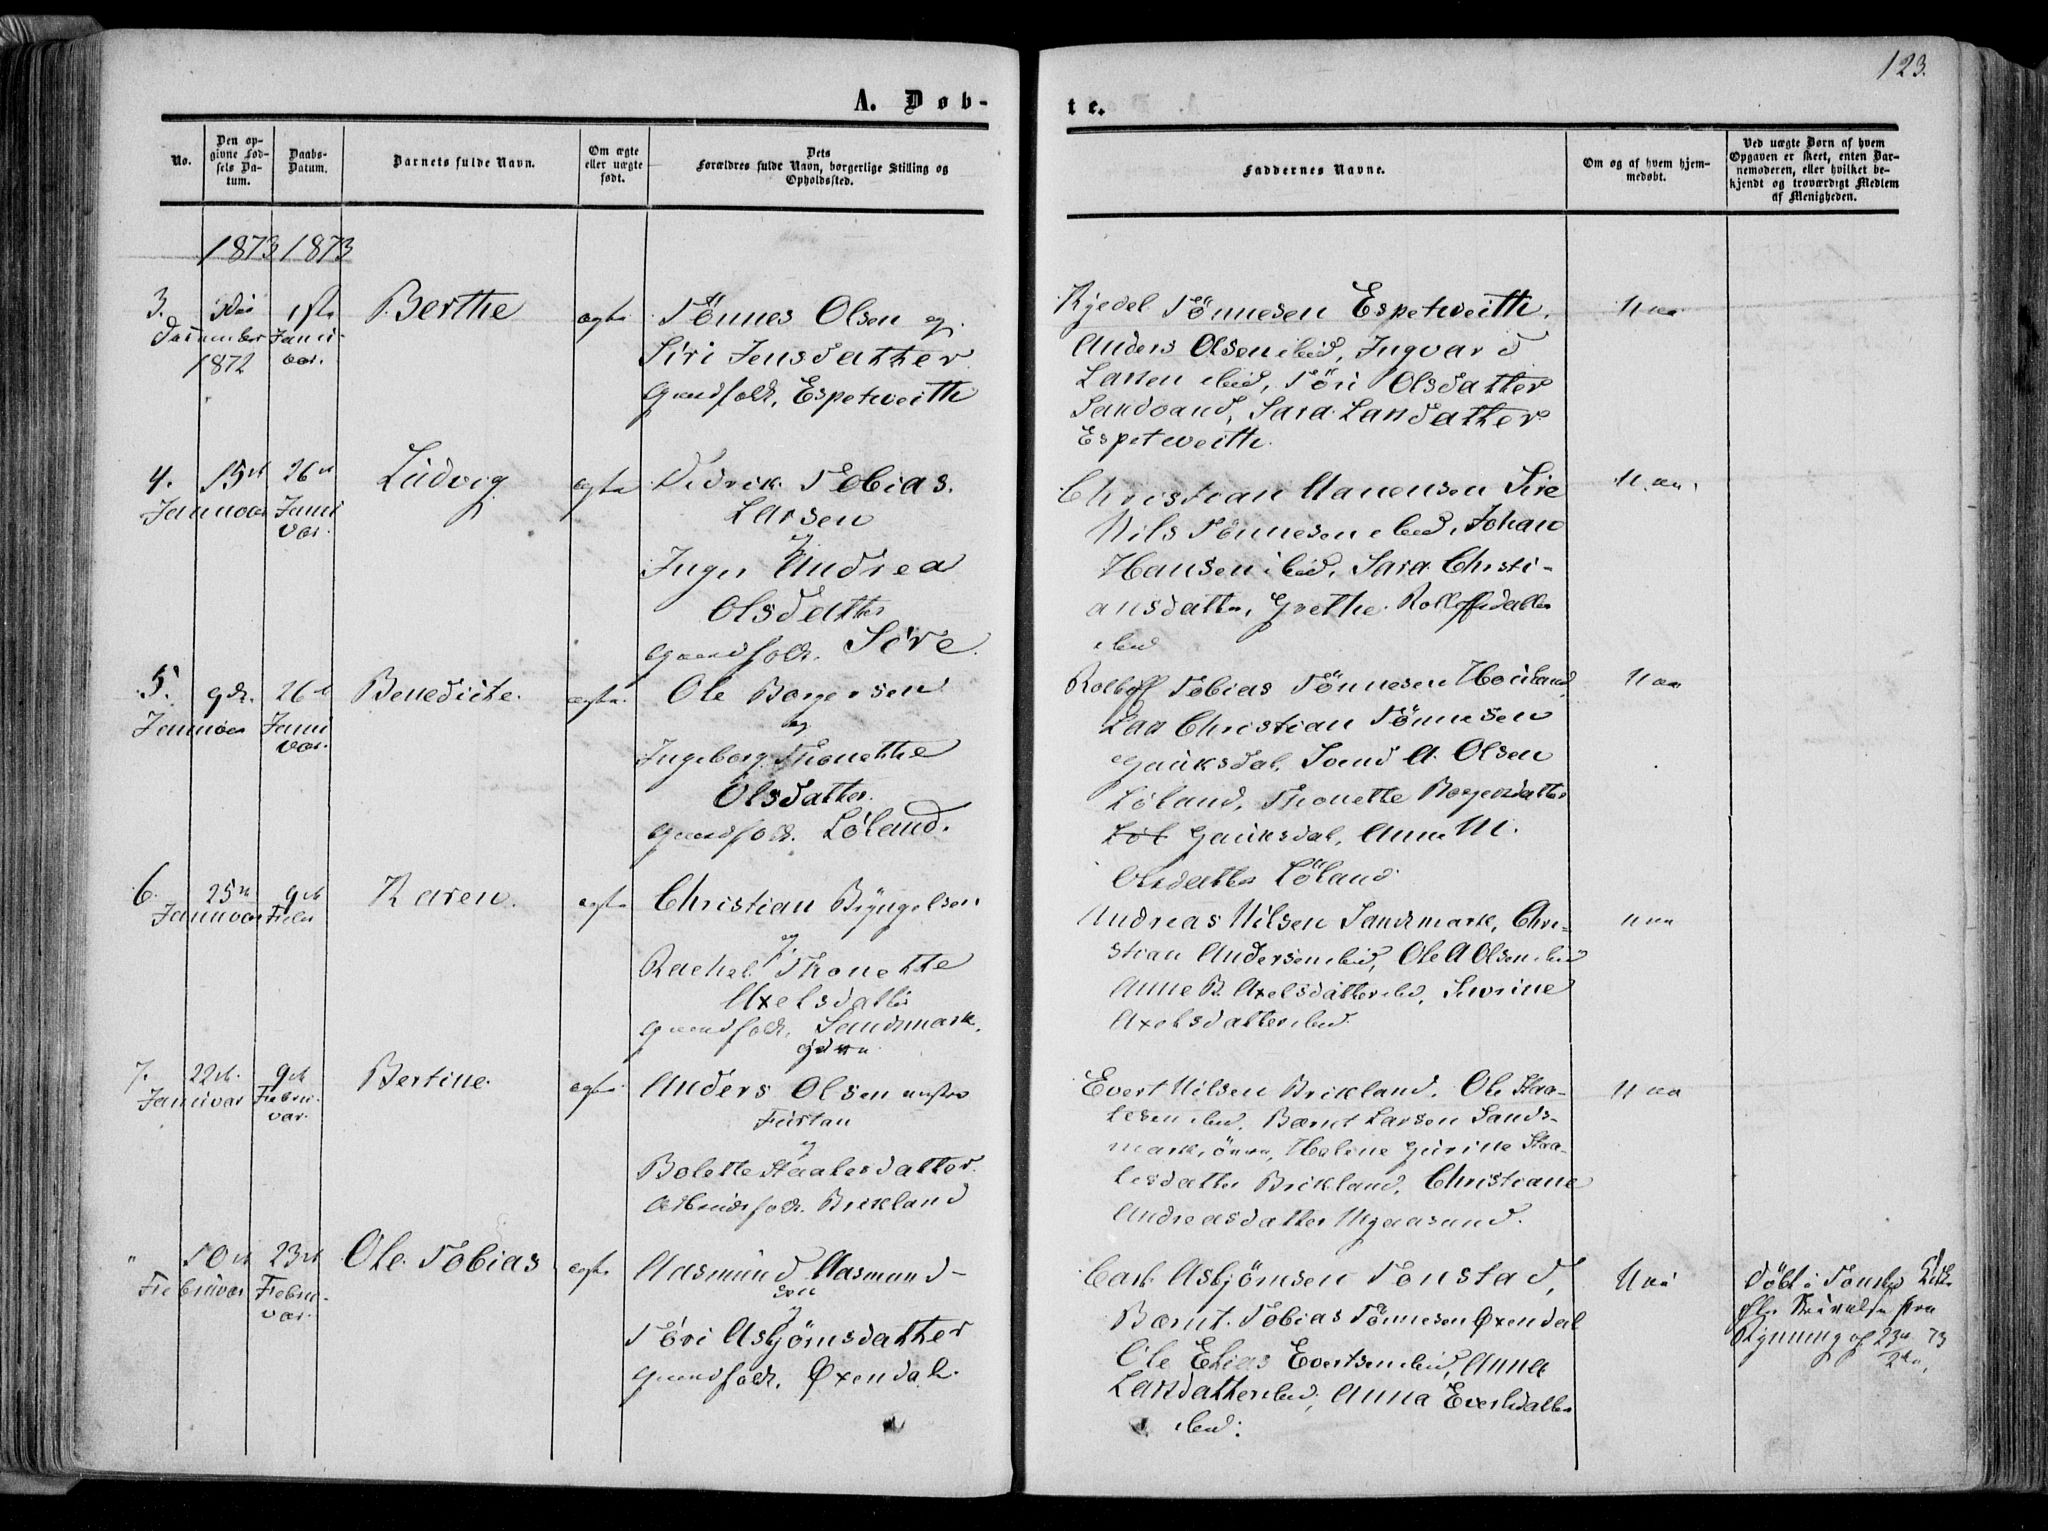 123.
A. Døb-
te.
No.
Den op-
givne Fød-
sels Da-
tum.
Daabs-
Datum.
Barnets fulde Navn.
Om ægte
eller uægte
født.
Dets
Forældres fulde Navn, borgerlige Stilling og
Opholdssted.
Faddernes Navne.
Om og af hvem hjem-
medøbt.
Ved uægte Børn af hvem
Opgaven er skeet, enten Bar-
nemoderen, eller hvilket be-
kjendt og troværdigt Medlem
af Menigheden.
1873 1873
3.
December
1872
1ste
Janu-
var.
Berthe
ægte
Tönnes Olsen og
Siri Jensdatter
Gaardfolk, Espetveith
Kjedel Tönnesen Espetveith,
Anders Olsen ibid, Ingvard
Larsen ibid, Töri Olsdatter
Sandvand, Sara Larsdatter
Espetveith.
Naa
4.
15de
Januvar
26de
Janu
var.
Ludvig
ægte
Didrik Tobias
Larsen
og
Inger Andrea
Olsdatter
Gaardfolk. Sire
Christian Sire
Nils Tönnesen ibid, Johan
Hansen ibid, Sara Christi-
ansdatter, Grethe Rolleffsdatter
ibid
Naa
5.
9de
Januvar
26de
Janu
var.
Benedicte.
ægte
Ole Borgersen
og
Ingeborg Thonette
Olsdatter.
Gaardfolk. Løland.
Rolleff Tobias Tönnesen Houland,
Christian Tönnesen
Gauksdal, Svend A. Olsen
Løland, Thonette Borgersdatter
Løl Gauksdal, Anne M.
Olsdatter Löland
Naa
6.
25de
Januvar
9de
Febr
Karen.
ægte
Christian Bÿngelsen
og
Rachel Thonette
Axelsdatter
Gaardfolk, Sandsmark,
Andreas Nilsen Sandsmark, Chri-
stian Andersen ibid, Ole A Olsen ibid
Anne B. Axelsdatter ibid, Severine
Axelsdatter ibid.
Naa
7.
22de
Januvar
9de
Febru-
var.
Bertine.
ægte
Anders Olsen
og
Bolette Staalesdatter.
Brekland
Evert Nilsen Brikland, Ole Staa-
lesen ibid, Bærnt Larsen Sands-
mark, Helene Gurine Staa-
lesdatter Brikland, Christiane
Andreasdatter Mygaasund.
Naa
"
10de
Februvar
23de
Febru-
var.
Ole Tobias
ægte
Aasmund Aasmund-
sen
og
Töri Asbjörnsdatter
Gaardfolk, Øxendal.
Carl Asbjörnsen Tonstad,
Bærnt Tobias Tönnesen Øxendal
Ole Elias Evertsen ibid, Anna
Larsdatter ibid, Anna Evertsdatter
ibid.
Naa
Döbt i Tonstad Kirke
fra
Rynning af 23de 73